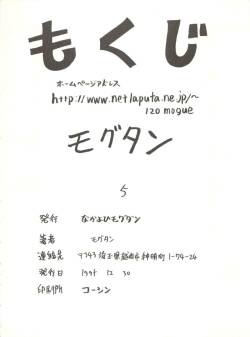 もくじ
ホームページアドレス
http://www.netlaputa.ne.jp/~
120 mogue
モグタン
5
発行 なかよひモグダン
著者 モグタン
連絡先 〒343 埼玉県越谷市神明町 1-74-24
発行日 1998 12 30
印刷所 コーシン